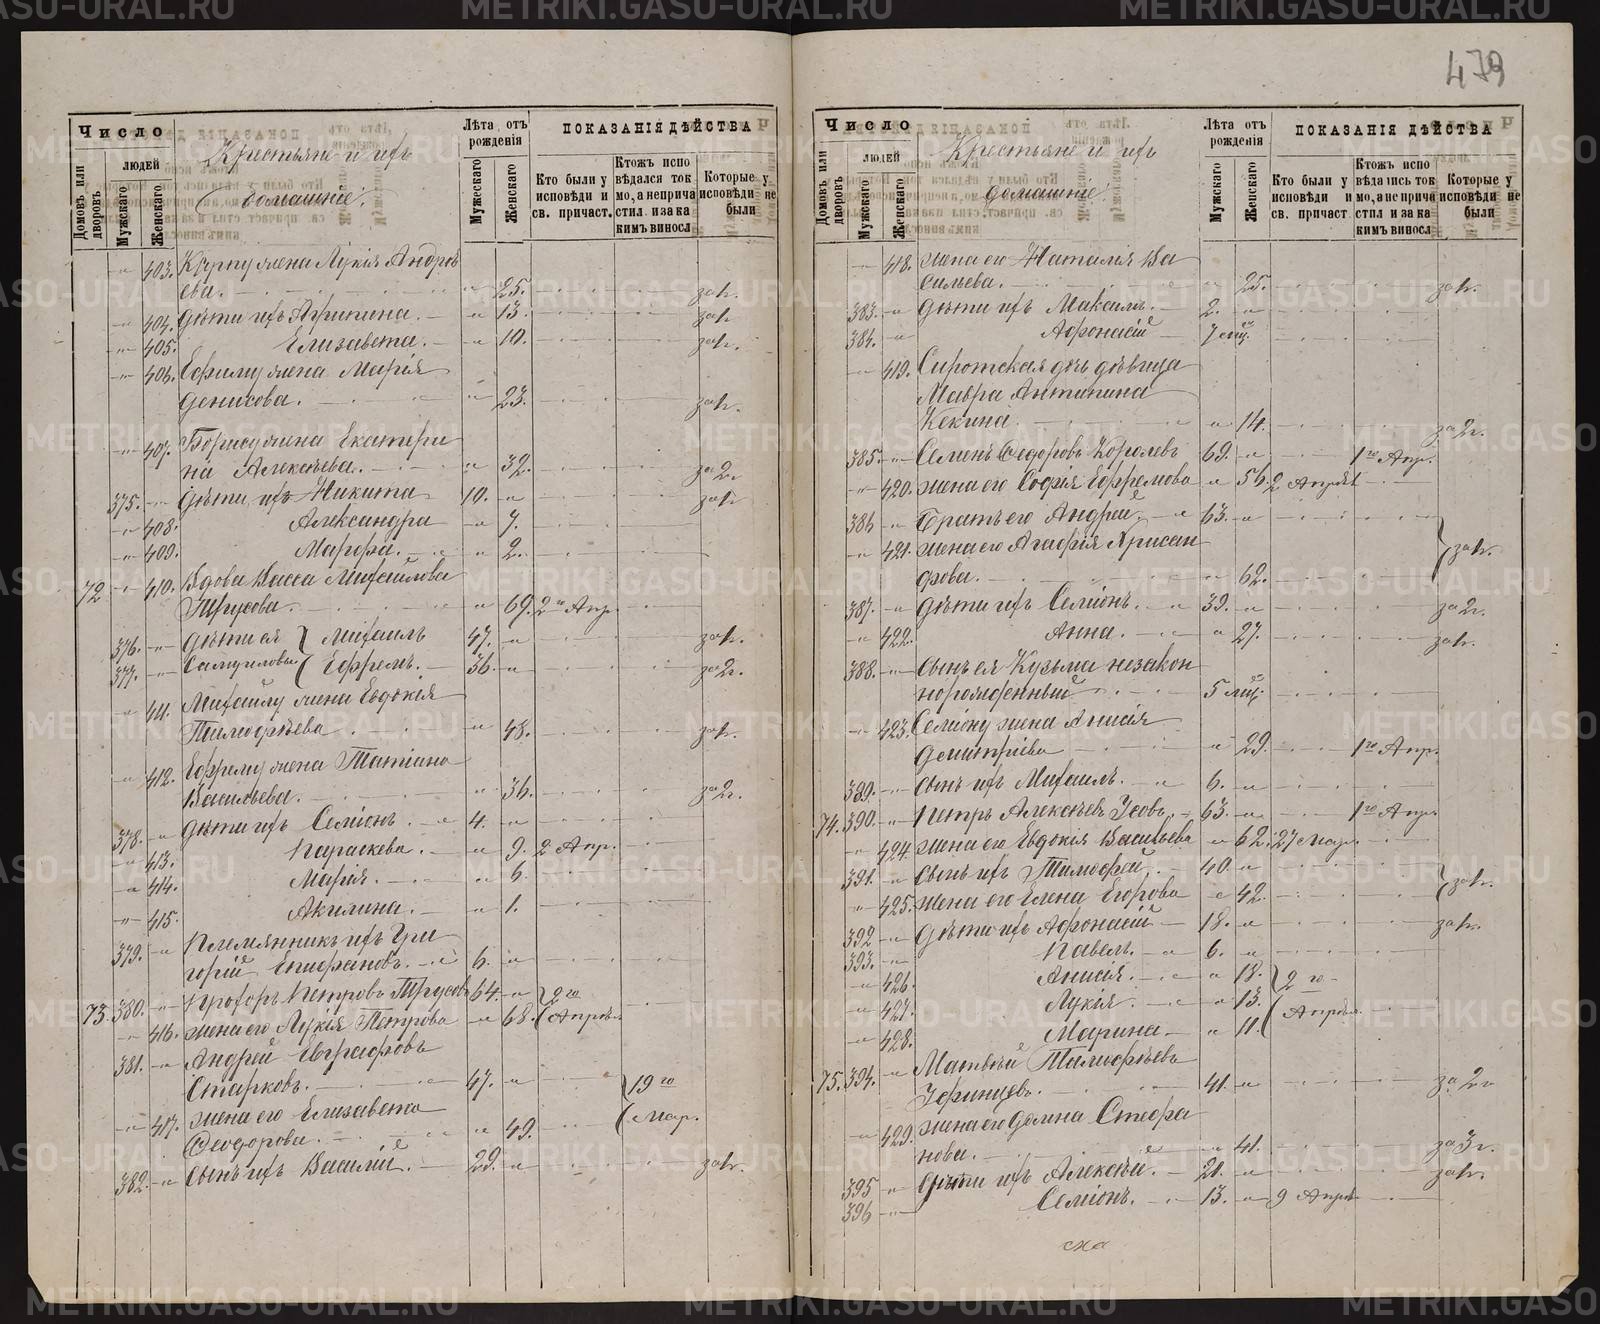 479
Число
людей
Домовъ или дворовъ
Мужскаго
Женскаго
Крестьяне и ихъ
домашніе.
Лѣта отъ рожденія
Мужескаго
Женскаго
ПОКАЗАНІЯ ДѢЙСТВА
Кто были у исповѣди и св. причаст.
Ктожъ испо вѣдался ток мо, а неприча стил. и за ка кимъ виносл
Которые у исповѣди не были
403. Карпу жена Лукія Андрѣ
ева. 25. за 1г.
404. дѣти ихъ Агрипина. 13. за 1г.
405. Елизавета. 10. за 1г.
406. Ефиму жена Марія
Денисова. 23. за 1г.
407. Борису жена Екатери
на Алексѣева. 32. за 2г.
375. дѣти ихъ Никита 10. за 1г.
408. Александра 7.
409. Марфа. 2.
72 410. Вдова Васса Михайлова
Трусова. 69. 2го Апр.
376. дѣти ея Михаилъ 47. за 1г.
377. Самуиловы Ефремъ. 36. за 2г.
411. Михайлу жена Евдокія
Тимофѣева 48. за 1г.
412. Ефрему жена Татіана
Васильева. 36. за 2г.
378. дѣти ихъ Семіонъ. 4.
413. Параскева. 9. 2 Апр.
414. Марія. 6.
415. Акилина. 1.
379. Племянникъ ихъ Гри
горій Епифановъ. 6.
73. 380. Прохоръ Петровъ Трусовъ 64. 2го
416. жена его Лукія Петрова 68. Апрѣля
381. Андрей Евграфовъ
Старковъ. 47. 19го
417. жена его Елизавета Мар.
Феодорова. 49.
382. сынъ ихъ Василій. 29. за 1г.
Число
людей
Домовъ или дворовъ
Мужскаго
Женскаго
Крестьяне и ихъ
домашніе.
Лѣта отъ рожденія
Мужескаго
Женскаго
ПОКАЗАНІЯ ДѢЙСТВА
Кто были у исповѣди и св. причаст
Ктожъ испо вѣдались ток мо, а не прича стил и за ка кимъ виносл
Которые у исповѣди не были
418. жена его Наталія Ва
сильева. 25. за 1г.
383. дѣти ихъ Максимъ. 2.
384. Афонасій 7 мѣц.
419. Сиротская дчь дѣвица
Мавра Антипина
Кекина. 14. за 2г.
385. Семенъ Федоровъ Королевъ 69. 1го Апр.
420. жена его Софія Ефремова 56. 2 Апрѣля
386 Братъ его Андрей. 63.
421. жена его Агафія Хрисан
фова. 62. за 1г.
387. дѣти ихъ Семіонъ. 39. за 2г.
422. Анна. 27. за 1г.
388. сынъ ея Кузьма незакон
норожденный 5 мѣц.
423. Семіону жена Анисія
Димитріева 29. 1го Апр.
389. сынъ ихъ Михаилъ. 6.
74. 390. Петръ Алексѣевъ Усовъ. 63. 1го Апр.
424. жена его Евдокія Васильева 62. 27 Мар.
391. сынъ ихъ Тимофей. 40.
425. жена его Елена Егорова 42. за 1г.
392 дѣти ихъ Афонасій 18. за 1г.
393. Павелъ. 6.
426. Анисія. 18. 2го
427. Лукія. 13. Апрѣля.
428. Марина 11.
75. 394. Матвѣй Тимофѣевъ
41. за 2г
429. жена его Домна Стефа
нова. 41. за 3г.
395 дѣти ихъ Алексѣй. 21. за 1г.
396 Семіонъ. 13. 9 Апрѣля